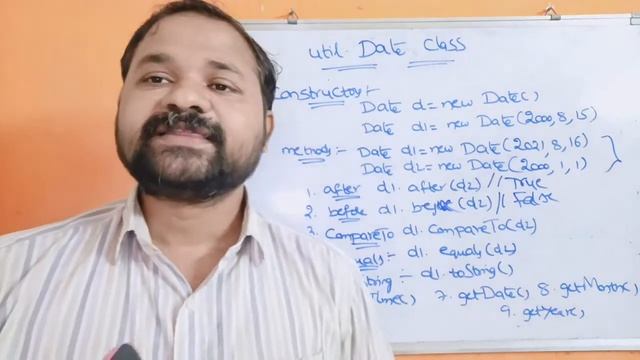 util. Date class
Constructor:-
Date d=new Date()
Date d1=new Date(2000,8,15)
methods:- Date d1=new Date(2021,8,16)
Date d2=new Date(2000,1,1)
1. after d1.after(d2) // True
2. before d1.before(d2) // False
3. CompareTo d1.CompareTo(d2)
uals:- d1.equals(d2)
tring:- d1.toString()
Time(, 7. getDate(, 8. getMonth(,
9. getYear(,